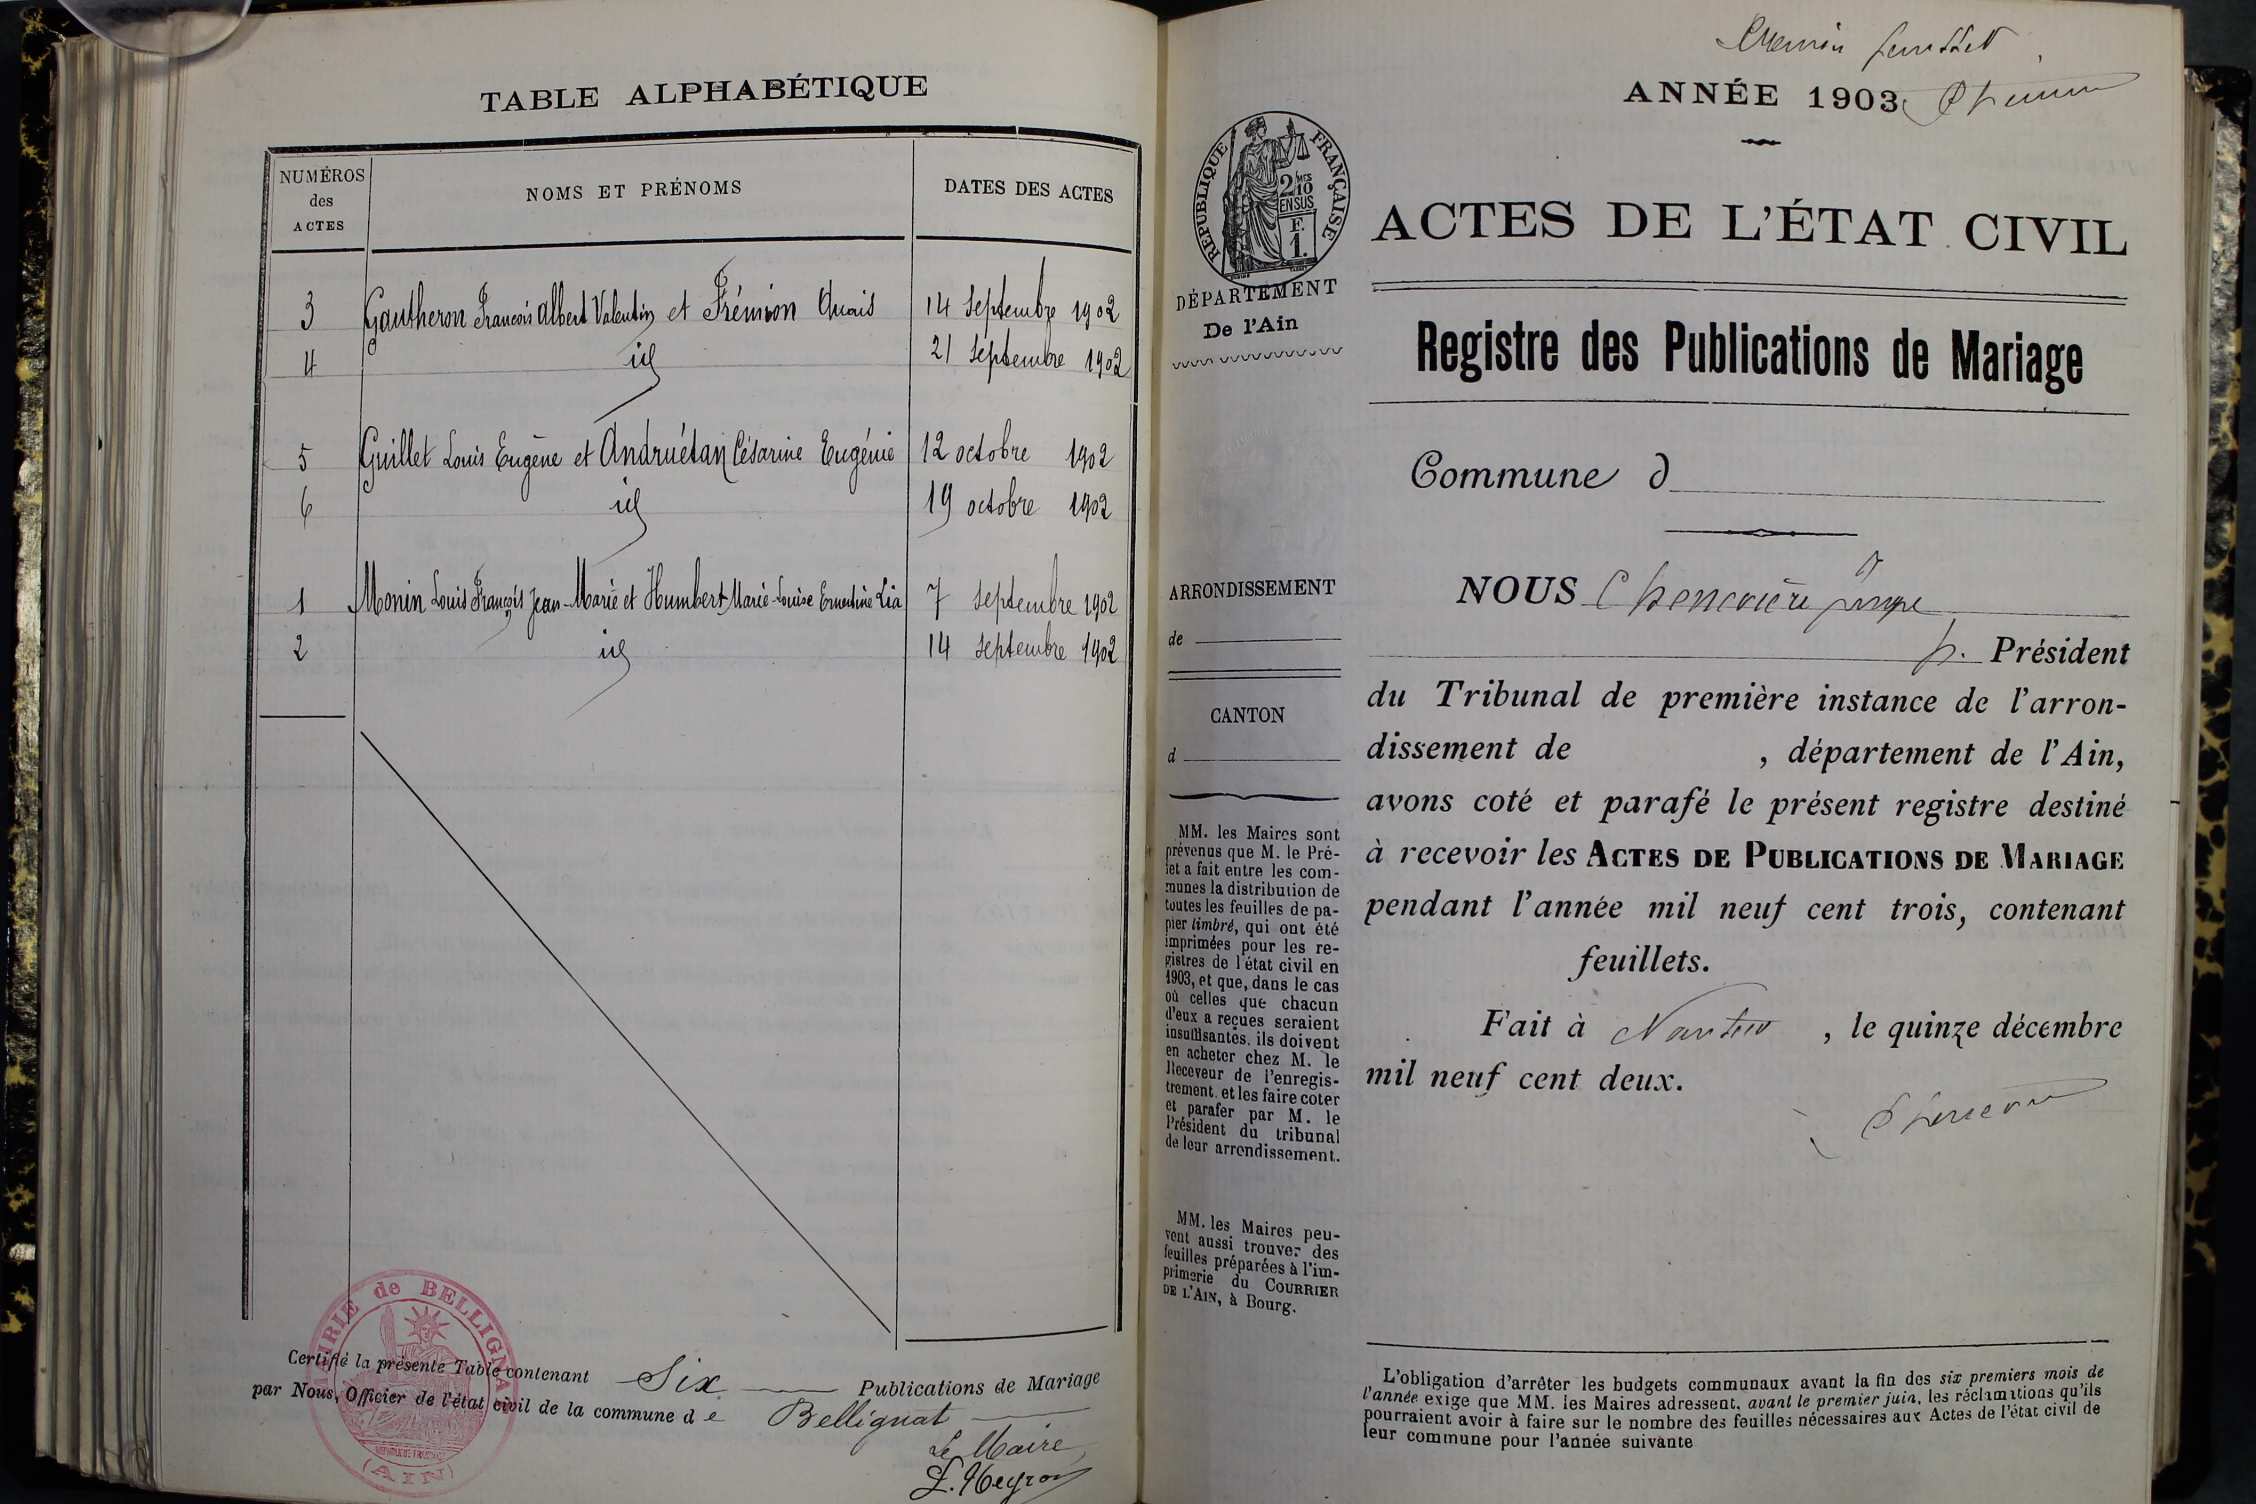 TABLE ALPHABÉTIQUE
NUMÉROS des ACTES
NOMS ET PRÉNOMS
DATES DES ACTES
3 Gautheron François Albert Valentin et Frémion Anaïs 14 septembre 1902
4 id 21 septembre 1902
5 Guillet Louis Eugène et Andruétan Césarine Eugénie 12 octobre 1902
6 id 19 octobre 1902
1 Monin Louis François Jean-Marie et Humbert Marie-Louise Ernestine Lia 7 septembre 1902
2 id 14 septembre 1902
Certifié la présente Table contenant Six Publications de Mariage
par Nous, Officier de l'état civil de la commune de Bellignat
Le Maire
MAIRIE de BELLIGNAT
RÉPUBLIQUE FRANÇAISE
(AIN)
ANNÉE 1903
RÉPUBLIQUE FRANÇAISE
2/10 MES
EN SUS
F.
1.
ACTES DE L'ÉTAT CIVIL
DÉPARTEMENT
De l'Ain
Registre des Publications de Mariage
Commune d
ARRONDISSEMENT
de
CANTON
d
NOUS
p. Président
du Tribunal de première instance de l'arron-
dissement de , département de l'Ain,
avons coté et parafé le présent registre destiné
à recevoir les ACTES DE PUBLICATIONS DE MARIAGE
pendant l'année mil neuf cent trois, contenant
feuillets.
Fait à Nantua, le quinze décembre
mil neuf cent deux.
MM. les Maires sont
prévenus que M. le Pré-
fet a fait entre les com-
munes la distribution de
toutes les feuilles de pa-
pier timbré, qui ont été
imprimées pour les re-
gistres de l'état civil en
1903, et que, dans le cas
où celles que chacun
d'eux a reçues seraient
insuffisantes, ils doivent
en acheter chez M. le
Receveur de l'enregis-
trement, et les faire coter
et parafer par M. le
Président du tribunal
de leur arrondissement.
MM. les Maires peu-
vent aussi trouver des
feuilles préparées à l'im-
primerie du COURRIER
DE L'AIN, à Bourg.
L'obligation d'arrêter les budgets communaux avant la fin des six premiers mois de
l'année exige que MM. les Maires adressent, avant le premier juin, les réclamations qu'ils
pourraient avoir à faire sur le nombre des feuilles nécessaires aux Actes de l'état civil de
leur commune pour l'année suivante